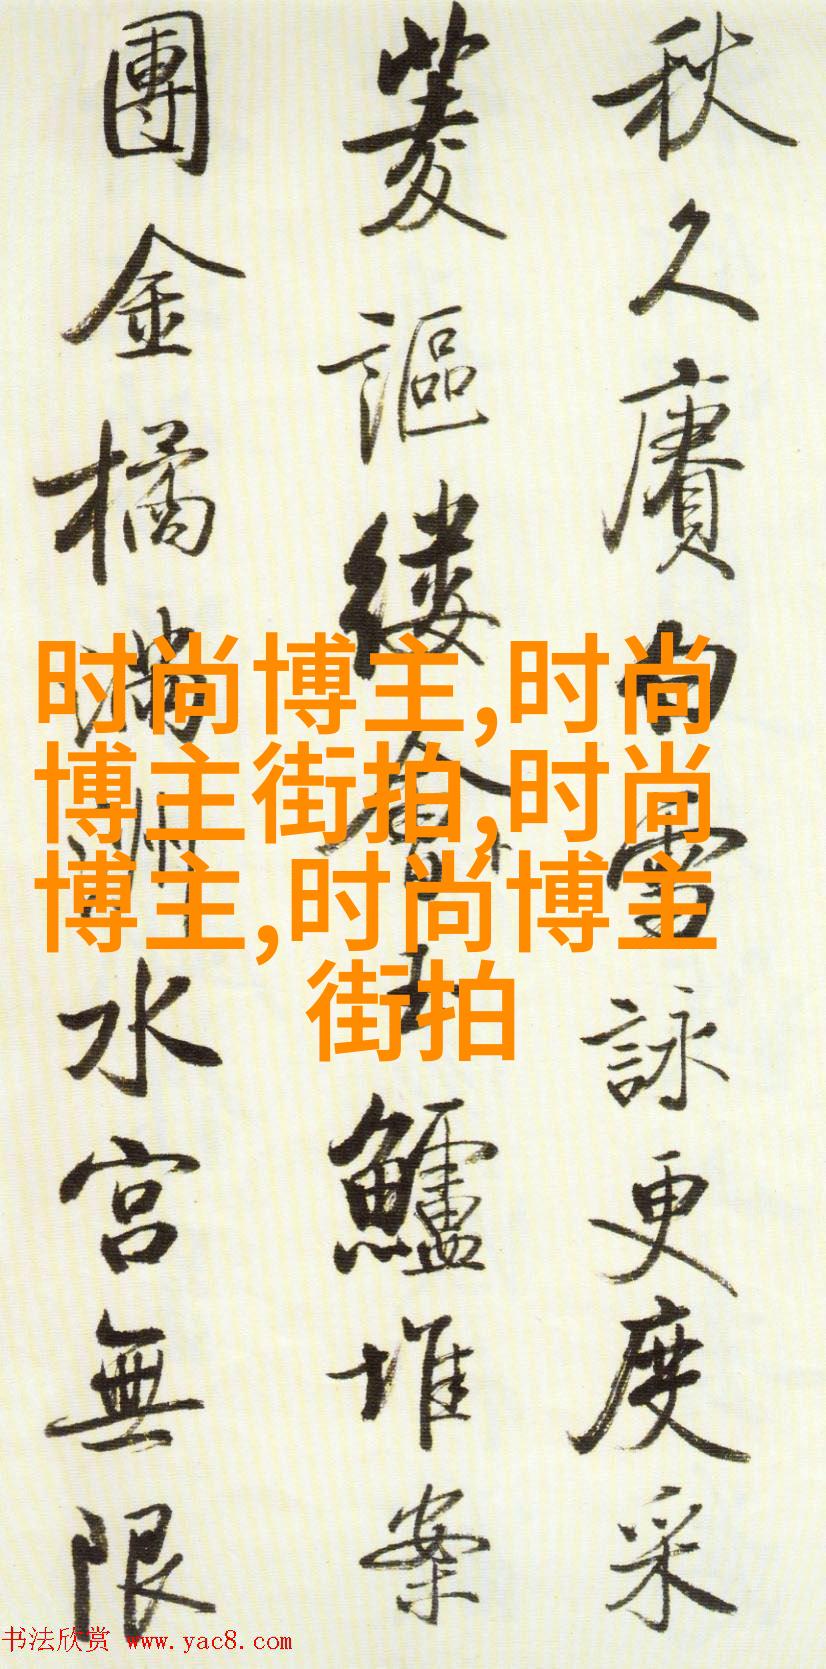 秋久賡白雪詠更度采
菱謳縷會玉鱸堆案
團金橘滿洲水宮無限
时尚博主,时尚
博主街拍,时尚
博主,时尚博主
街拍
书法欣赏 www.yac8.com